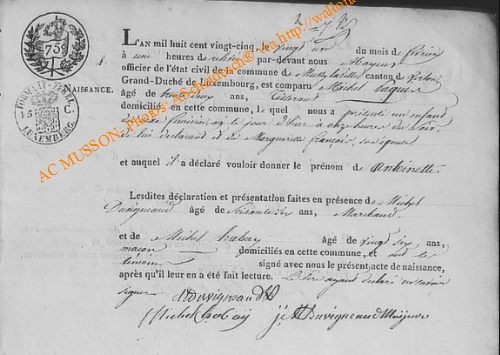 759
FORMAAT-ZEGEL
15 C.
LUXEMBURG.
NAISSANCE.
L'AN mil huit cent vingt-cinq, le vingt un du mois de février
à une heures de relevée par-devant nous Mayeur
officier de l'état civil de la commune de canton de
Grand-Duché de Luxembourg, est comparu Michel
âgé de ans,
domiciliés en cette commune, lequel nous a présenté un enfant
du sexe féminin, né le jour d'hier à onze heures du soir,
de lui déclarant et de Marguerite françois, son épouse
et auquel il a déclaré vouloir donner le prénom de antoinette.
Lesdites déclaration et présentation faites en présence de Michel
Duvigneaud âgé de ans, Marchand
et de Michel habay âgé de vingt six ans,
maçon domiciliés en cette commune, et ont le
signé avec nous le présent acte de naissance,
après qu'il leur en a été fait lecture. Le père ayant déclaré ne savoir
signer
Duvigneaud
Michel habay Duvigneaud Mayeur
AC MUSSON- Photos @Wallonia asbl (http://wallonia